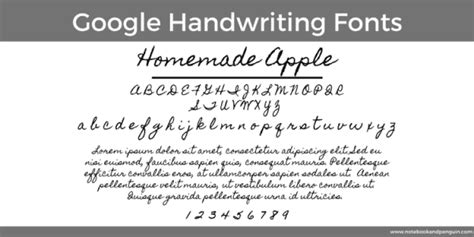 Google Handwriting Fonts
Homemade Apple
A B C D E F G H I J K L M N O P Q R
S T U V W X Y Z
a b c d e f g h i j k l m n o p q r s t u v w x y z
Lorem ipsum dolor sit amet, consectetur adipiscing elit. Sed eu
nisi euismod, faucibus sapien quis, consequat mauris. Pellentesque
efficitur convallis eros, at ullamcorper sapien sodales ut. Aenean
pellentesque velit mauris, ut vestibulum libero convallis ut.
Quisque gravida pellentesque urna id ultricies.
1 2 3 4 5 6 7 8 9
www.notebookandpenguin.com